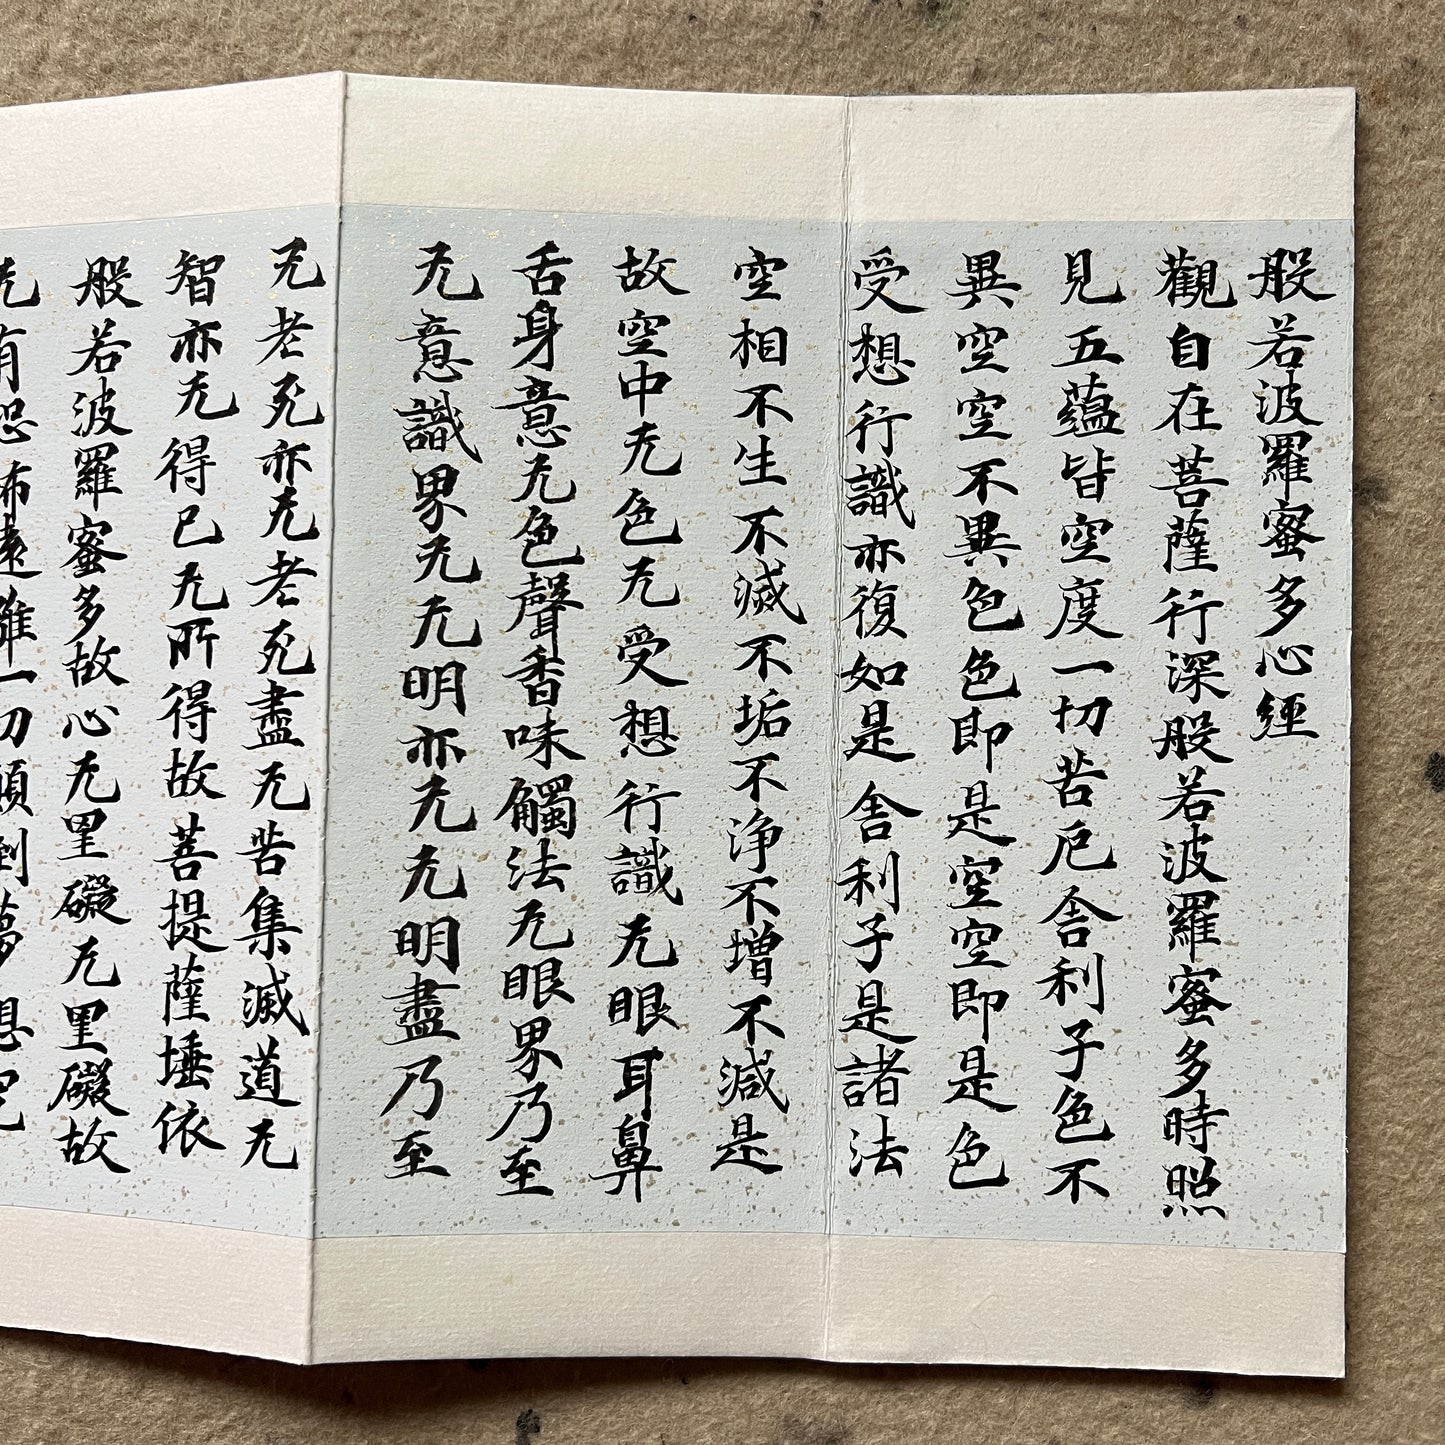 般若波羅蜜多心經
觀自在菩薩行深般若波羅蜜多時照
見五蘊皆空度一切苦厄舍利子色不
異空空不異色色即是空空即是色
受想行識亦復如是舍利子是諸法
空相不生不滅不垢不净不增不減是
故空中无色无受想行識无眼耳鼻
舌身意无色聲香味觸法无眼界乃至
无意識界无无明亦无无明盡乃至
无老死亦无老死盡无苦集滅道无
智亦无得已无所得故菩提薩埵依
般若波羅蜜多故心无罣礙无罣礙故
无有恐怖遠離一切顛倒夢想究